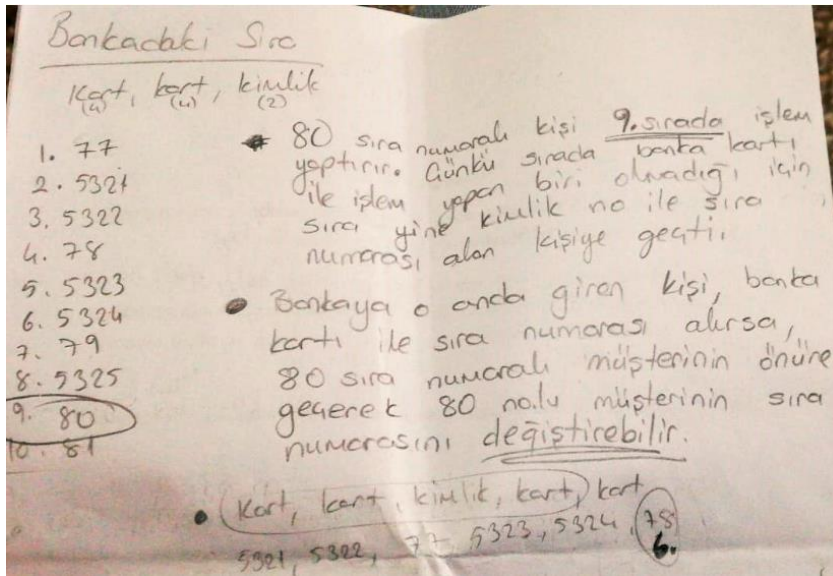 Bankadaki Sıra
Kart, kart, kimlik
(4) (4) (2)
1. 77
2. 5321
3. 5322
4. 78
5. 5323
6. 5324
7. 79
8. 5325
9. 80
10. 81
80 sıra numaralı kişi 9. sırada işlem
yaptırır. Günkü sırada banka kartı
ile işlem yapan biri olmadığı için
sıra yine kimlik no ile sıra
numarası alan kişiye geçti.
• Bankaya o anda giren kişi, banka
kartı ile sıra numarası alırsa,
80 sıra numaralı müşterinin önüne
geçerek 80 nolu müşterinin sıra
numarasını değiştirebilir.
• Kart, kart, kimlik, kart, kart
5321, 5322, 77, 5323, 5324, 78
6.